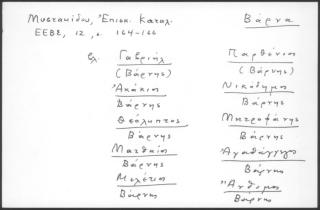 Μυστακίδου, Ἐπισκ. Κατάλ.
ΕΕΒΣ, 12, σ. 164-166
Βάρνα
βλ. Γαβριήλ
(Βάρνης)
Ἀκάκιος
Βάρνης
Θεόληπτος
Βάρνης
Ματθαῖος
Βάρνης
Μελέτιος
Βάρνης
Παρθένιος
(Βάρνης)
Νικόδημος
Βάρνης
Μητροφάνης
Βάρνης
Ἀγαθάγγελος
Βάρνης
Ἄνθιμος
Βάρνης